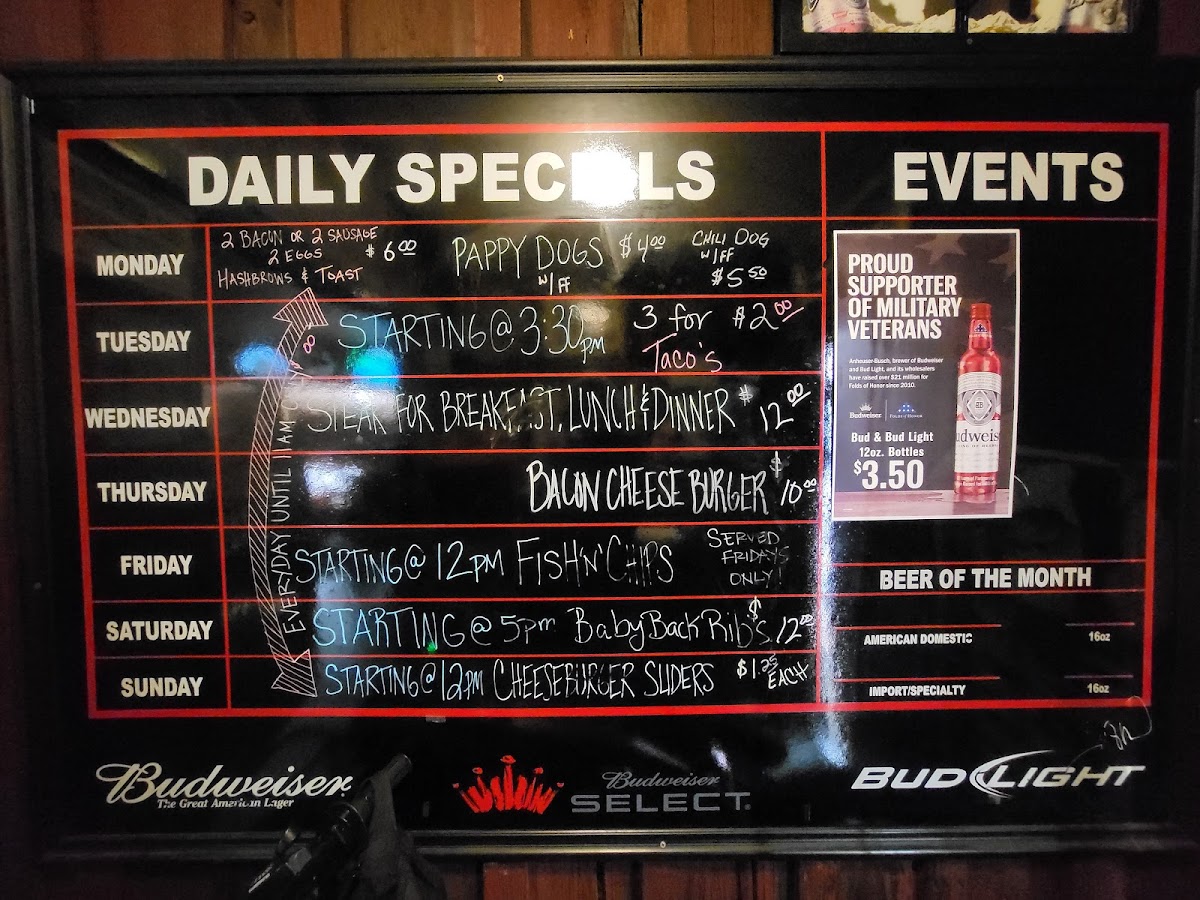 DAILY SPECIALS
EVENTS
MONDAY
2 BACON OR 2 SAUSAGE
2 EGGS
HASHBROWS & TOAST
$6.00
PAPPY DOGS
W/FF
$4.00
CHILI DOG
W/FF
$5.50
TUESDAY
STARTING @ 3:30pm
3 for $2.00
Taco's
WEDNESDAY
STEAK FOR BREAKFAST, LUNCH & DINNER $12.00
THURSDAY
BACON CHEESE BURGER $10.00
FRIDAY
STARTING @ 12PM FISH'N'CHIPS
SERVED
FRIDAYS
ONLY!
SATURDAY
STARTING @ 5pm BabyBack Rib's $12.00
SUNDAY
STARTING @ 12PM CHEESEBURGER SLIDERS
$1.25
EACH
EVERYDAY UNTIL 11AM
PROUD
SUPPORTER
OF MILITARY
VETERANS
Anheuser-Busch, brewer of Budweiser
and Bud Light, and its wholesalers
have raised over $21 million for
Folds of Honor since 2010.
Budweiser
FOLDS OF HONOR
Bud & Bud Light
12oz. Bottles
$3.50
udweis
BEER OF THE MONTH
AMERICAN DOMESTIC
16oz
IMPORT/SPECIALTY
16oz
Budweiser
The Great American Lager
Budweiser
SELECT.
BUD LIGHT